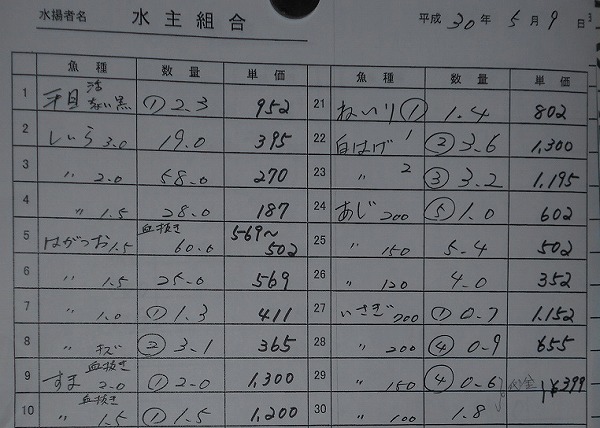 水揚者名 水主組合 平成 30 年 5 月 9 日
魚種 数量 単価 魚種 数量 単価
1 平目 活 黒 ① 2.3 952
21 ねいり ① 1.4 802
2 しいら 3.0 19.0 395
22 白はげ 1 ② 3.6 1,300
3 〃 2.0 58.0 270
23 〃 2 ③ 3.2 1,195
4 〃 1.5 28.0 187
24 あじ 200 ⑤ 1.0 602
5 はがつお 1.5 血抜き 60.0 569〜502
25 〃 150 5.4 502
6 〃 1.5 25.0 569
26 〃 120 4.0 352
7 〃 1.0 ① 1.3 411
27 いさぎ 300 ① 0.7 1,152
8 〃 キズ ② 3.1 365
28 〃 200 ④ 0.9 655
9 すま 血抜き 2.0 ① 2.0 1,300
29 〃 150 ④ 0.6 ¥399
10 〃 血抜き 1.5 ① 1.5 1,200
30 〃 100 1.8